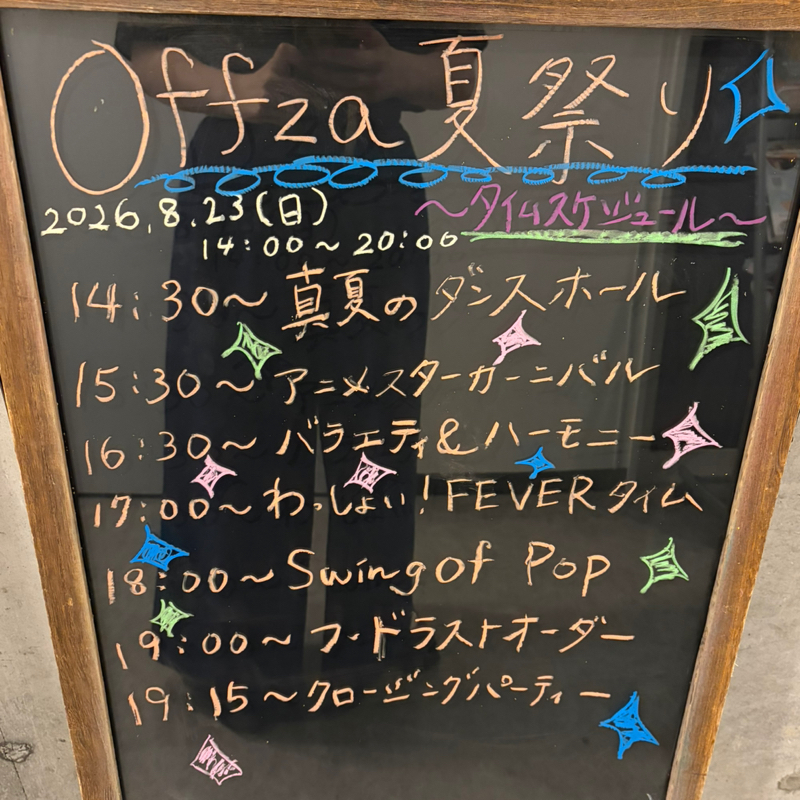 Offza夏祭り
2026.8.23(日)
～タイムスケジュール～
14:00～20:00
14:30～真夏のダンスホール
15:30～アニメスターカーニバル
16:30～バラエティ&ハーモニー
17:00～わっしょい!FEVERタイム
18:00～Swing of Pop
19:00～フードラストオーダー
19:15～クロージングパーティー